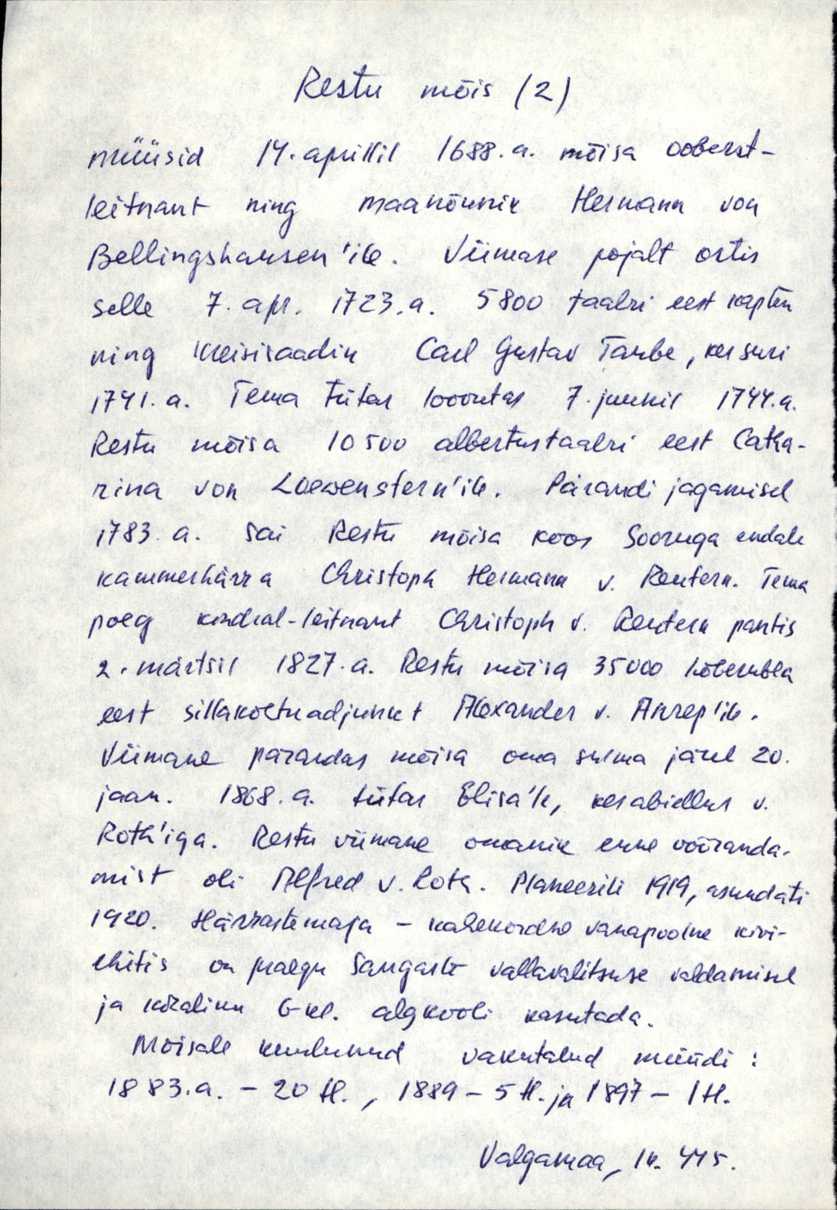 Restu mõis (2)
müüsid 14. aprillil 1688. a. mõisa ooberst-
leitnant ning maanõunik Hermann von
Bellingshausen'ile. Viimase pojalt ostis
selle 7. apr. 1723. a. 5800 taalri eest kapten
ning kreisisaadik Carl Gustav Taube, kes suri
1741. a. Tema tütar loovutas 7. juunil 1744. a.
Restu mõisa 10500 albertustaalri eest Catha-
rina von Loewenstern'ile. Pärandi jagamisel
1783. a. sai Restu mõisa koos Sooruga endale
kammerhärra Christoph Hermann v. Reutern. Tema
poeg kindral-leitnant Christoph v. Reutern pantis
2. märtsil 1827. a. Restu mõisa 35000 hõberubla
eest sillakohtuadjunkt Alexander v. Anrep'ile.
Viimane pärandas mõisa oma surma järel 20.
jaan. 1868. a. tütar Elisa'le, kes abiellus v.
Roth'iga. Restu viimane omanik enne võõranda-
mist oli Alfred v. Roth. Planeeriti 1919, asundati
1920. Härrastemaja – kahekordne vanapoolne kivi-
ehitis on praegu Sangaste vallavalitsuse valdamisel
ja kohaliku 6-kl. algkooli kasutada.
Mõisale kuulunud vakutalud müüdi:
1883. a. – 20 tl., 1889 – 5 tl. ja 1897 – 1 tl.
Valgamaa, lk. 445.